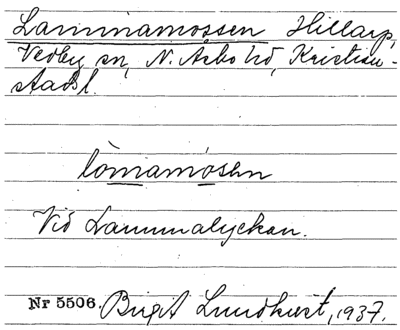 Lammamossen Hillarp,
Vedby sn, N. Åsbo hd, Kristian-
stads l.
lòmamósen
Vid Lammalyckan.
Nr 5506. Birgit Lundkvist, 1937.